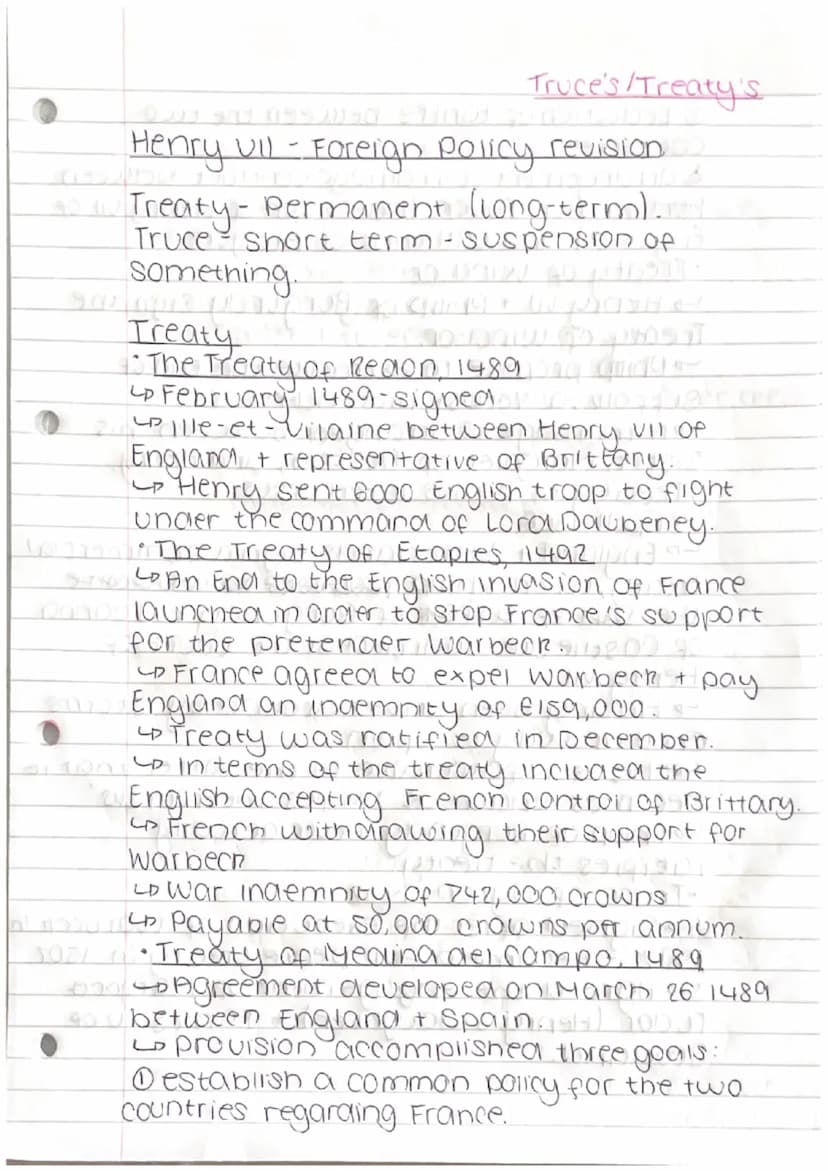 Truce's/Treaty's
Henry VII - Foreign Policy revision
Treaty - Permanent (long-term).
Truce - short term - suspension of
something.
Treaty
• The Treaty of Redon, 1489
↳ February 1489 - signed
↳ Ille-et-Vilaine between Henry VII of
England + representative of Brittany.
↳ Henry sent 6000 English troop to fight
under the command of Lord Daubeney.
• The Treaty of Etaples, 1492
↳ An End to the English invasion of France
launched in order to stop France's support
for the pretender Warbeck.
↳ France agreed to expel Warbeck + pay
England an indemnity of £159,000.
↳ Treaty was ratified in December.
↳ In terms of the treaty included the
English accepting French control of Brittary.
↳ French withdrawing their support for
Warbeck
↳ War indemnity of 742,000 crowns
↳ Payable at 50,000 crowns per annum.
• Treaty of Medina del Campo, 1489
↳ Agreement developed on March 26 1489
between England + Spain.
↳ provision accomplished three goals:
① establish a common policy for the two
countries regarding France.